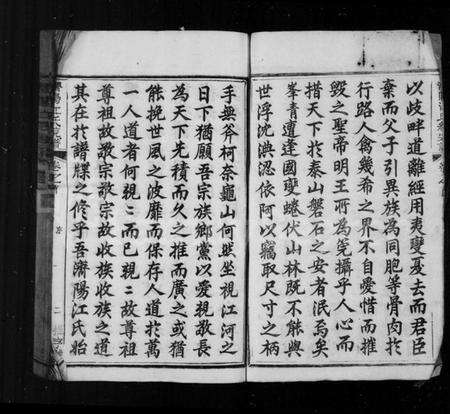 以歧畔道離經用夷變憂去而君臣
棄而父子引異族為同胞等骨肉於
行路人禽幾希之界不自愛惜而摧
毀之聖帝明王所為筦攝乎人心而
措天下於泰山磐石之安者泯焉矣
峯青遭逢國變蜷伏山林既不能與
世浮沈淟涊依阿以竊取尺寸之柄
手無斧柯奈龜山何然坐視江河之
日下猶願吾宗族鄉黨以愛親敬長
為天下先積而久之推而廣之或猶
能挽世風之波靡而保存人道於萬
一人道者何親二而已親二故尊祖
尊祖故敬宗敬宗故收族收族之道
其在於譜牒之修乎吾濟陽江氏始